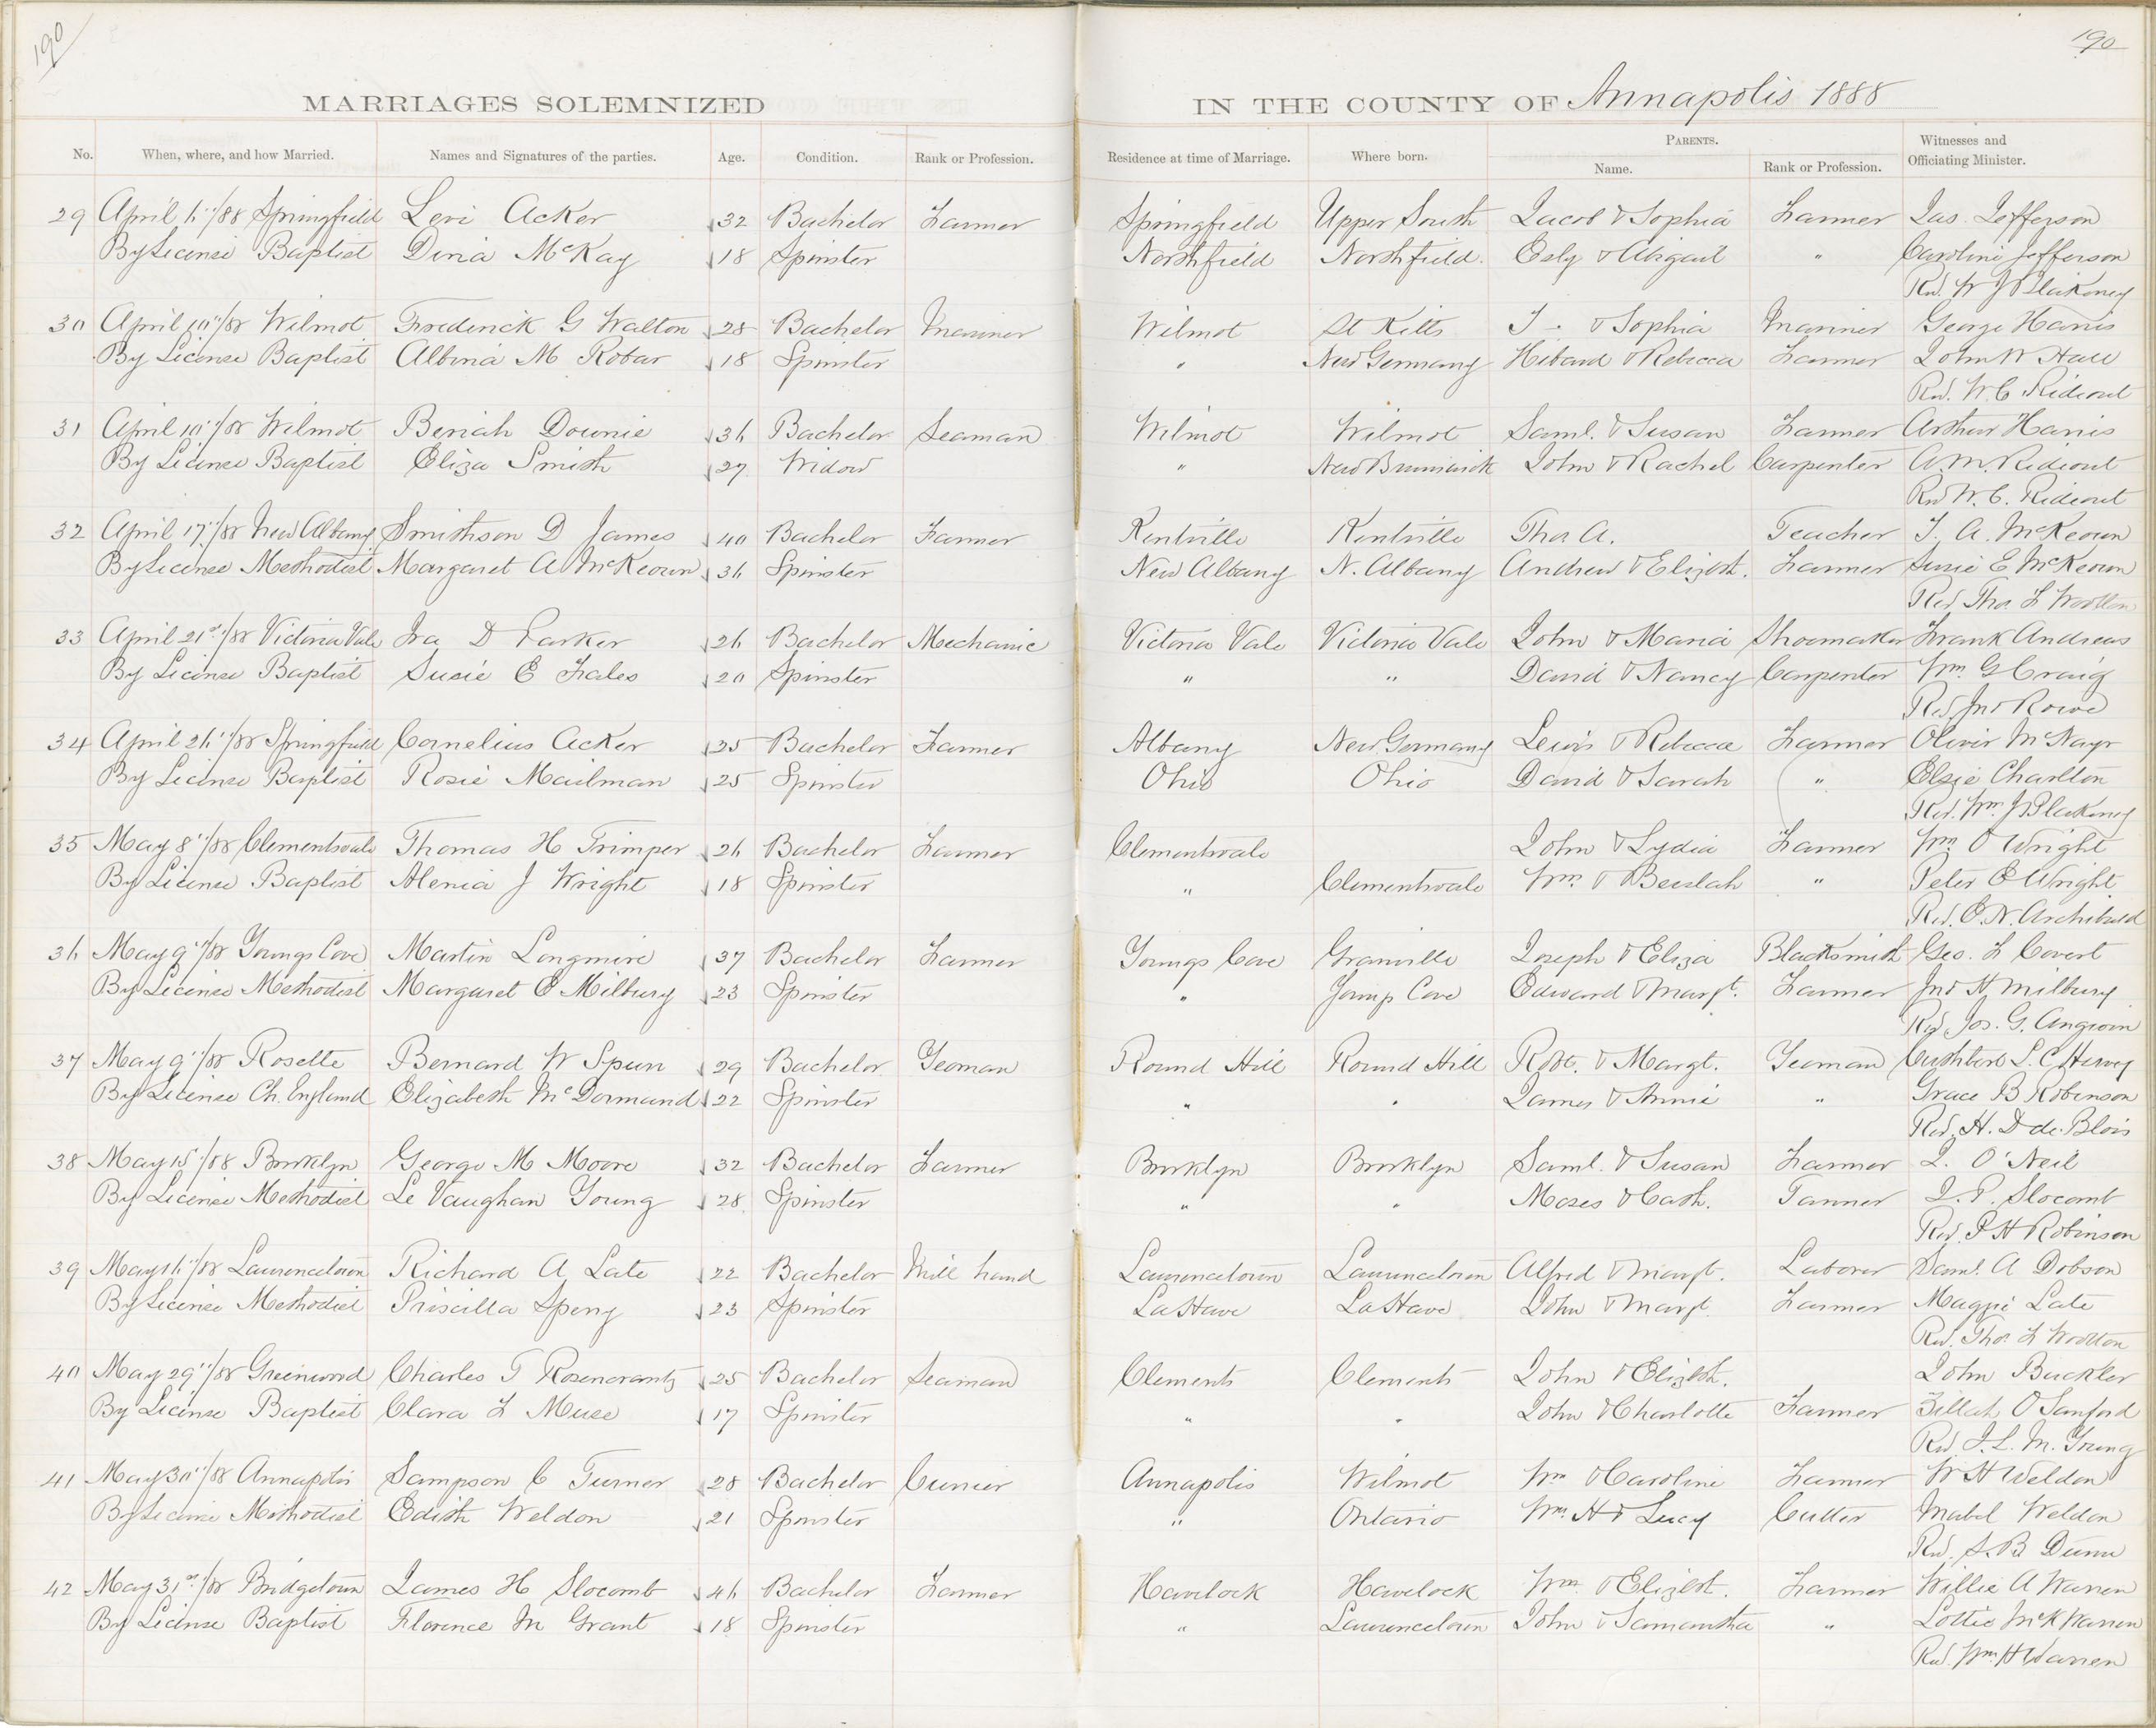 190
190
MARRIAGES SOLEMNIZED IN THE COUNTY OF Annapolis 1888
No. When, where, and how Married. Names and Signatures of the parties. Age. Condition. Rank or Profession. Residence at time of Marriage. Where born. PARENTS. Name. Rank or Profession. Witnesses and Officiating Minister.
29 April 16"/88 Springfield Levi Acker 32 Bachelor Farmer Springfield Upper South Jacob & Sophia Farmer Jas. Jefferson
By License Baptist Dina McKay 18 Spinster Northfield Northfield. Esly & Abigail " Caroline Jefferson
Rev. W J Blakeney
30 April 10"/88 Wilmot Frederick G Walton 28 Bachelor Mariner Wilmot St Kitts J - & Sophia Mariner George Harris
By License Baptist Albina M Robar 18 Spinster " New Germany Hibard & Rebecca Farmer John W Hall
Rev. W. C. Rideout
31 April 10"/88 Wilmot Beriah Downie 36 Bachelor Seaman Wilmot Wilmot Saml. & Susan Farmer Arthur Harris
By License Baptist Eliza Smith 27 Widow " New Brunswick John & Rachel Carpenter A. M. Rideout
Rev W. C. Rideout
32 April 17"/88 New Albany Smithson D James 40 Bachelor Farmer Kentville Kentville Thos A. Teacher J. A. McKeown
By License Methodist Margaret A McKeown 36 Spinster New Albany N. Albany Andrew & Elizbth. Farmer Susie E McKeown
Rev. Thos. F Wootton
33 April 21st/88 Victoria Vale Ira D Parker 26 Bachelor Mechanic Victoria Vale Victoria Vale John & Maria Shoemaker Frank Andrews
By License Baptist Susie E Fales 20 Spinster " " David & Nancy Carpenter Wm. G Craig
Rev Jno Rowe
34 April 26"/88 Springfield Cornelius Acker 25 Bachelor Farmer Albany New Germany Lewis & Rebecca Farmer Oliver McNayr
By License Baptist Rosie Mailman 25 Spinster Ohio Ohio David & Sarah " Elsie Charlton
Rev. Wm. J Blakeney
35 May 8"/88 Clementsvale Thomas H Trimper 26 Bachelor Farmer Clementsvale John & Lydia Farmer Wm O Wright
By License Baptist Alenia J Wright 18 Spinster " Clementsvale Wm. & Beulah " Peter E Wright
Rev. E. N. Archibald
36 May 9"/88 Youngs Cove Martin Longmire 37 Bachelor Farmer Youngs Cove Granville Joseph & Eliza Blacksmith Geo. F Covert
By License Methodist Margaret E Milbury 23 Spinster " Youngs Cove Edward & Margt. Farmer Jno H Milbury
Rev Jos. G. Angwin
37 May 9"/88 Rosette Bernard W Spurr 29 Bachelor Yeoman Round Hill Round Hill Robt. & Margt. Yeoman Cuthbert S. C Hervy
By License Ch. England Elizabeth McDormand 22 Spinster " " James & Annie " Grace B Robinson
Rev. H. D de Blois
38 May 15"/88 Brooklyn George M Moore 32 Bachelor Farmer Brooklyn Brooklyn Saml. & Susan Farmer J. O'Neil
By License Methodist Le Vaughan Young 28 Spinster " " Moses & Cath. Tanner J. P. Slocomb
Rev. P H Robinson
39 May 16"/88 Lawrencetown Richard A Late 22 Bachelor Mill hand Lawrencetown Lawrencetown Alfred & Margt. Laborer Saml. A Dobson
By License Methodist Priscilla Spery 23 Spinster LaHave LaHave John & Margt Farmer Maggie Late
Rev. Thos. F Wootton
40 May 29"/88 Greenwood Charles T Rosencrantz 25 Bachelor Seaman Clements Clements John & Elizbth. John Buckler
By License Baptist Clara F Muse 17 Spinster " " John & Charlotte Farmer Zillah O Sanford
Rev. J. L. M. Young
41 May 30"/88 Annapolis Sampson C Turner 28 Bachelor Currier Annapolis Wilmot Wm & Caroline Farmer W H Weldon
By License Methodist Edith Weldon 21 Spinster " Ontario Wm. H & Lucy Cutter Mabel Weldon
Rev. S. B Dunn
42 May 31st/88 Bridgetown James H Slocomb 46 Bachelor Farmer Havelock Havelock Wm. & Elizbt. Farmer Willie A Warren
By License Baptist Florence M Grant 18 Spinster " Lawrencetown John & Samantha " Lottie McK Warren
Rev. Wm. H Warren